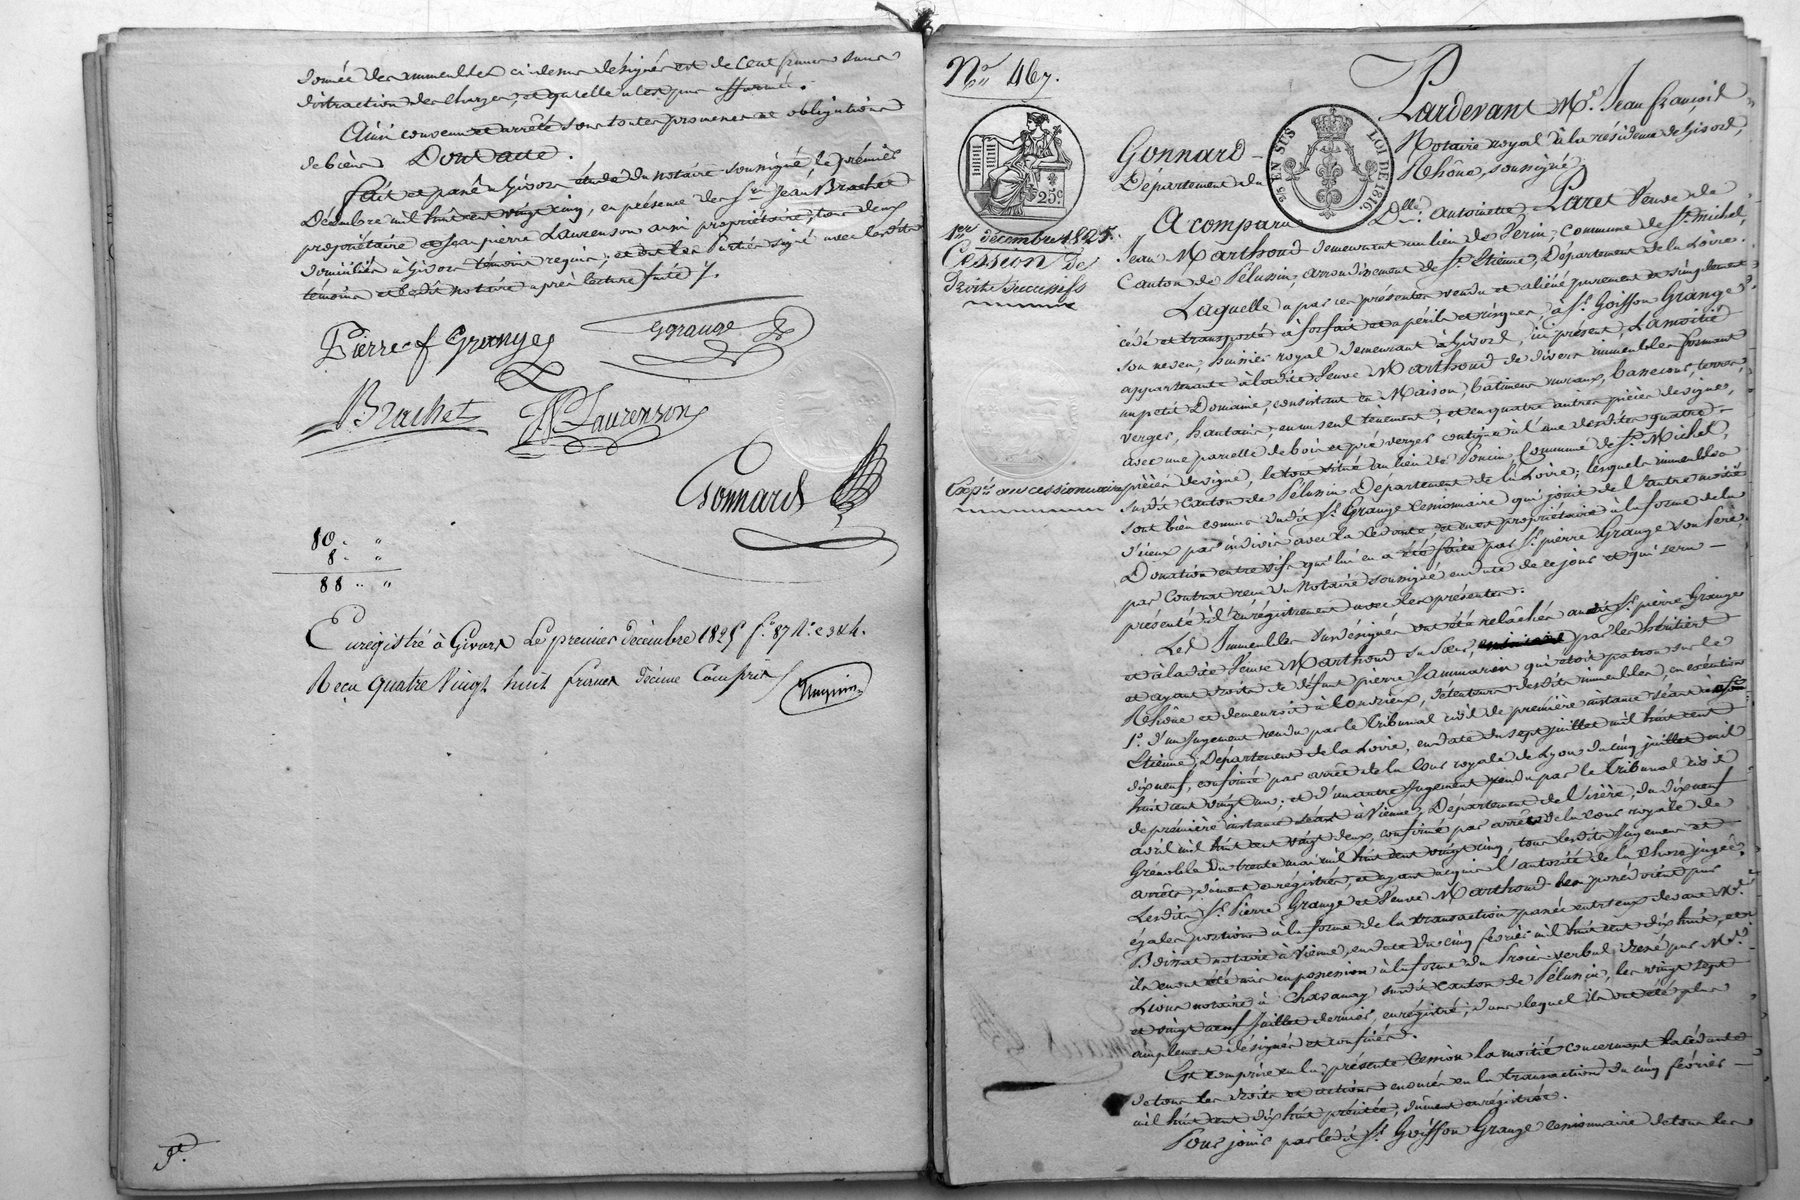 donnée des immeubles ci dessus désignés est de cent francs sans
distraction des charges, et qu'elle n'est pas affermée.
Ainsi convenu et arrêté sous toutes promesses et obligations
de biens Dont acte.
Fait et passé à Givors étude du notaire soussigné, le premier
Décembre mil huit cent vingt cinq, en présence des Srs Jean Brachet
propriétaire et Jean pierre Laurenson aussi propriétaire, tous deux
domiciliés à Givors témoins requis; et ont les parties signé avec lesdits
témoins et ledit notaire après lecture faite /.
Pierre f Granges
Ggrange
Brachet
JP Laurenson
Gonnard
80 . "
8 . "
88 .. "
Enregistré à Givors Le premier décembre 1825 fo. 87 Ro. c 3 & 4.
Reçu quatre Vingt huit francs décime Compris
No. 467.
Pardevant Me. Jean françois
Gonnard Notaire royal à la résidence de Givors,
Département du Rhône, soussigné;
25 EN SUS
LOI DE 1816.
25c
1er décembre 1825.
Cession de
droits successifs
Expon. au cessionnaire
A comparu Dlle. antoinette Paret Veuve de
Jean Marthoud demeurant au lieu de Verin, Commune de St. michel,
Canton de Pélussin, arrondissement de St. Etienne, Département de la Loire.
Laquelle a par ces présentes vendu et aliéné purement et simplement
cédé et transporté à forfait et à périls et risques, à Sr. Goiffon Grange
son neveu, huissier royal demeurant à Givors, ici présent, La moitié
appartenante à ladite Veuve Marthoud de divers immeubles formant
un petit Domaine, consistant en Maison, bâtimens ruraux, bassecour, terres,
verger, hautains, en un seul tènement, et en quatre autres pièces de vignes,
avec une parcelle de bois et pré verger contigue à l'une desdites quatre
pièces de vigne, le tout situé au lieu de Commune de St. Michel,
susdit Canton de Pélussin Département de la Loire; lesquels immeubles
sont bien connus dudit Sr. Grange cessionnaire qui jouit de l'autre moitié
d'iceux par indivis avec la cédante, et en est propriétaire à la forme de la
Donation entre vifs qui lui en a été faite par Sr. pierre Grange son père,
par Contrat reçu du Notaire soussigné en date de ce jour et qui sera
présenté à l'enrégistrement avec les présentes.
Les Immeubles susdésignés ont été relâchés audit Sr. pierre Grange
et à ladite Veuve Marthoud sa sœur, par les héritiers
et ayant droits de défunt pierre qui étoit patron sur le
Rhône et demeuroit à Condrieux, détenteurs desdits immeubles, en exécution
1o. d'un Jugement rendu par le Tribunal civil de première instance séant à St.
Etienne, Département de la Loire, en date du sept juillet mil huit cent
dix neuf, confirmé par arrêt de la Cour royale de Lyon du cinq juillet mil
huit cent vingt un; et d'un autre Jugement rendu par le Tribunal civil
de première instance séant à Vienne, Département de l'isère, du dix neuf
avril mil huit cent vingt deux, confirmé par arrêt de la cour royale de
Grénoble du trente mai mil huit cent vingt cinq, tous lesdits Jugemens et
arrêts, dûment enrégistrés, et ayant acquis l'autorité de la chose jugée.
Lesdits Sr. Pierre Grange et Veuve Marthoud les possédoient par
égales portions à la forme de la transaction passée entr'eux devant Me.
Boissat notaire à Vienne, en date du cinq février mil huit cent dix huit, et
ils en ont été mis en possession à la forme du Procès verbal dressé par Me.
Lions notaire à Chavanay susdit Canton de Pélussin, les vingt sept
et vingt neuf Juillet dernier, enrégistré, dans lequel ils ont été plus
amplement désignés et confinés.
Est comprise en la présente Cession la moitié concernant la cédante
de tous les droits et actions énoncés en la transaction du cinq février
mil huit cent dix huit précitée, dûment enrégistrée.
Pour jouir par ledit Sr. Goiffon Grange cessionnaire de tous les